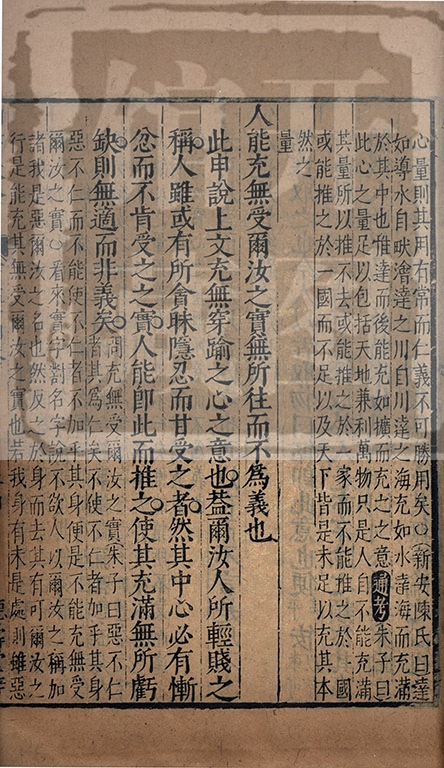 心量則其用有常而仁義不可勝用矣○新安陳氏曰達
如導水自畎澮達之川自川達之海充如水達海而充滿
於其中也惟達而後能充如擴而充之之意通考朱子曰
此心之量足以包括天地兼利萬物只是人自不能充滿
其量所以推不去或能推之於一家而不能推之於國
或能推之於一國而不足以及天下皆是未足以充其本
然之
量
人能充無受爾汝之實無所往而不爲義也
此申說上文充無穿踰之心之意也葢爾汝人所輕賤之
稱人雖或有所貪昧隱忍而甘受之者然其中心必有慚
忿而不肯受之之實人能即此而推之使其充滿無所虧
缺則無適而非義矣○問充無受爾汝之實朱子曰惡不仁
者其爲仁矣不使不仁者加乎其身
惡不仁而不能使不仁者不加乎其身便是不能充無受
爾汝之實○看來實字對名字說不欲人以爾汝之稱加
諸我是惡爾汝之名也然反之於身而去其有可爾汝之
行是能充其無受爾汝之實也若我身有未是處則雖惡